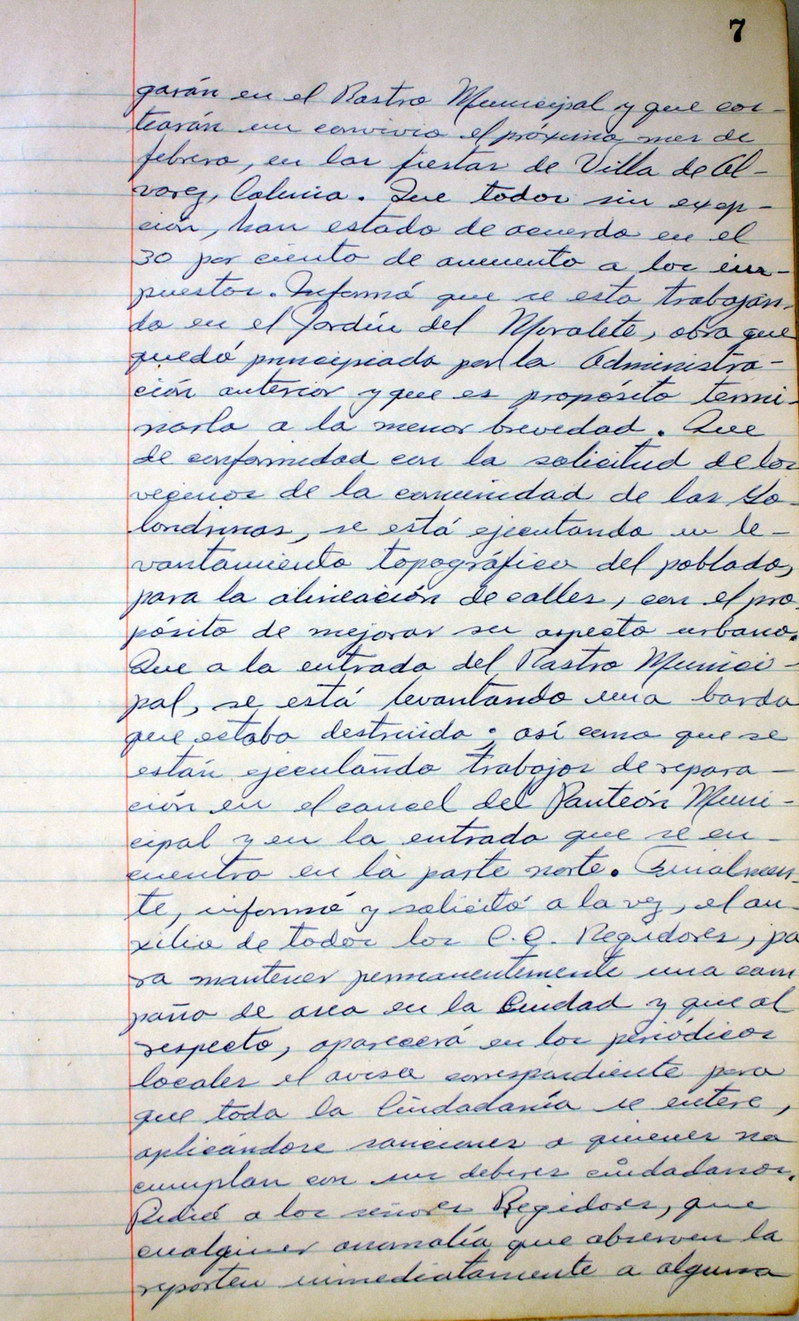 7
garán en el Rastro Municipal y que cos-
tearán un convivio el próximo mes de
febrero, en las fiestas de Villa de Al-
varez, Colima. Que todos sin exep-
ción, han estado de acuerdo en el
30 por ciento de aumento a los im-
puestos. Informó que se esta trabajan-
do en el Jardín del Moralete, obra que
quedó principiada por la Administra-
ción anterior y que es propósito termi-
narla a la menor brevedad. Que
de conformidad con la solicitud de los
vecinos de la comunidad de las Go-
londrinas, se está ejecutando un le-
vantamiento topográfico del poblado,
para la alineación de calles, con el pro-
pósito de mejorar su aspecto urbano.
Que a la entrada del Rastro Munici-
pal, se está levantando una barda
que estaba destruida; así como que se
están ejecutando trabajos de repara-
ción en el cancel del Panteón Muni-
cipal y en la entrada que se en-
cuentra en la parte norte. Finalmen-
te, informó y solicitó a la vez, el au-
xilio de todos los C.C. Regidores, pa
ra mantener permanentemente una cam
paña de aseo en la Ciudad y que al
respecto, aparecerá en los periódicos
locales el aviso correspondiente para
que toda la Ciudadanía se entere,
aplicándose sanciones a quienes no
cumplan con sus deberes ciudadanos.
Pidió a los señores Regidores, que
cualquier anomalía que observen la
reporten inmediatamente a alguna